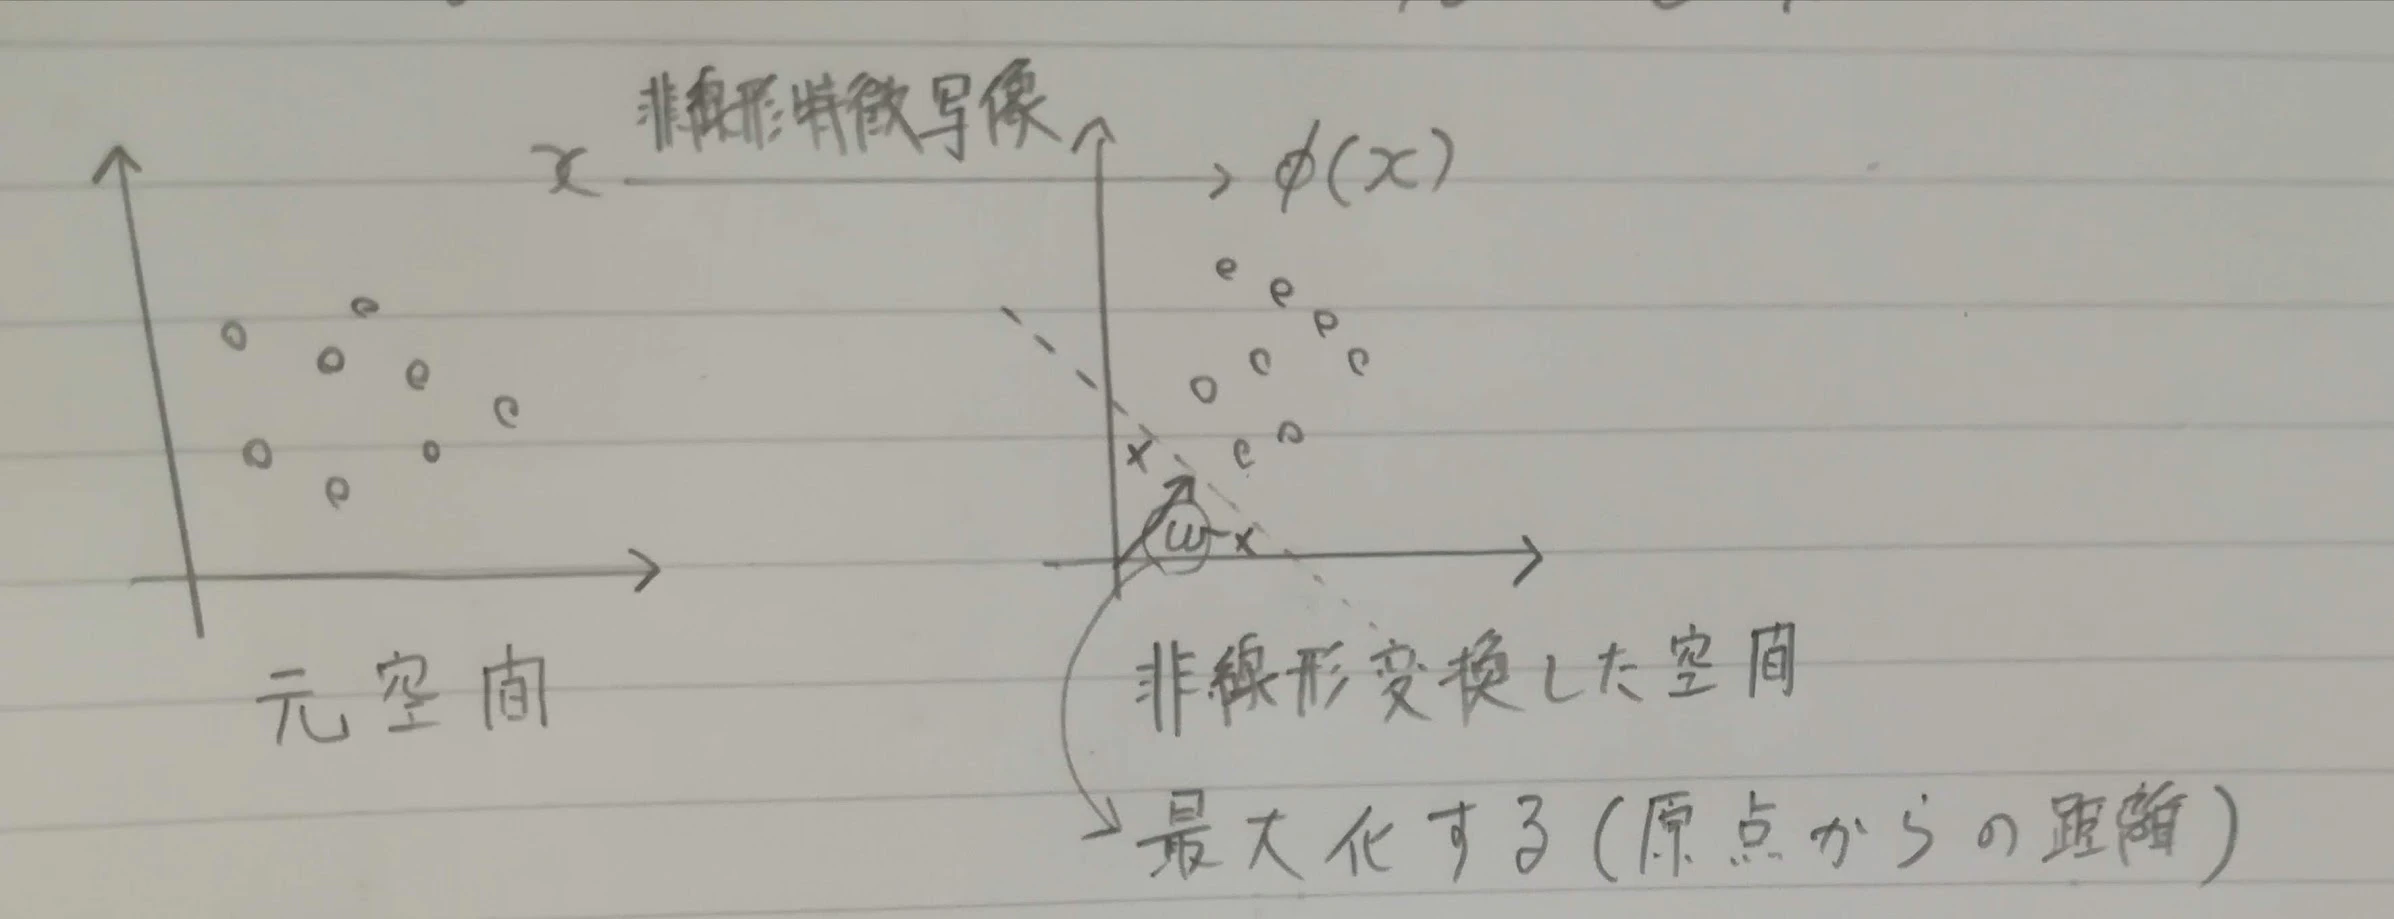 非線形特徴写像
x → φ(x)
w
元空間
非線形変換した空間
最大化する(原点からの距離)